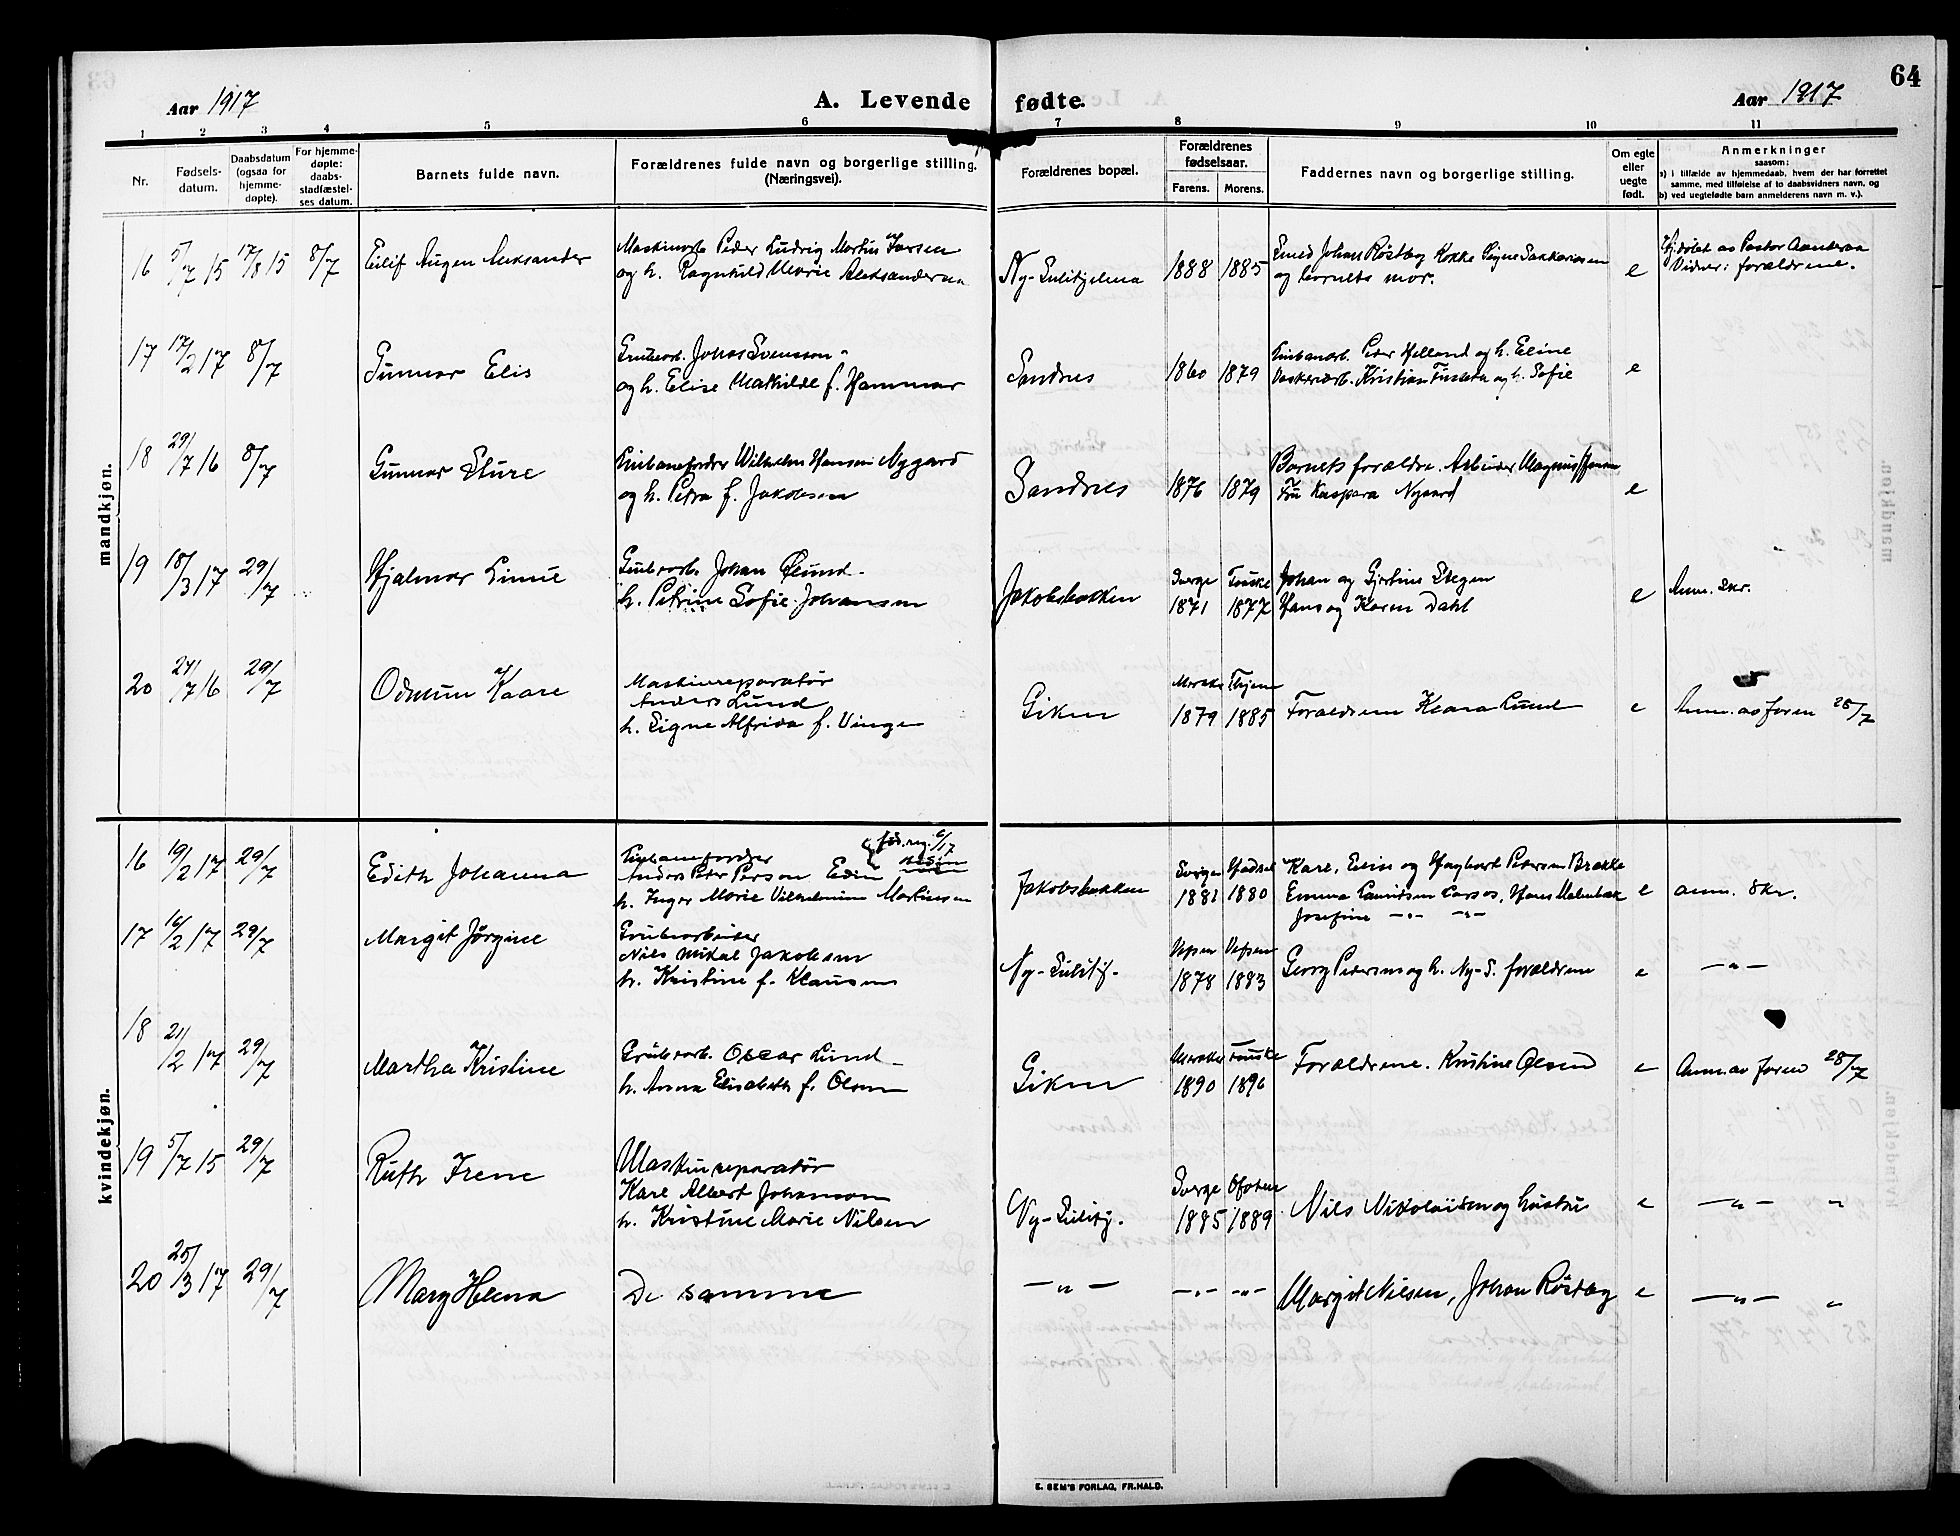 64
Aar 1917
A. Levende fødte.
Aar 1917
1 2 3 4 5 6 7 8 9 10 11
Nr.
Fødsels-
datum.
Daabsdatum
(ogsaa for
hjemme-
døpte).
For hjemme-
døpte:
daabs-
stadfæstel-
ses datum.
Barnets fulde navn.
Forældrenes fulde navn og borgerlige stilling.
(Næringsvei).
Forældrenes bopæl.
Forældrenes
fødselsaar.
Farens. Morens.
Faddernes navn og borgerlige stilling.
Om egte
eller
uegte
født.
Anmerkninger
saasom:
a) i tilfælde av hjemmedaab, hvem der har forrettet
samme, med tilføielse af to daabsvidners navn, og
b) ved uegtefødte barn anmelderens navn m. v.).
mandkjøn.
16 5/7 15 17/8 15 8/7 Eilif Augen Aleksander
Maskinarb. Peder Ludvig Martin Larsen
og h. Ragnhild Marie Aleksandersen
Ny-Sulitjelma 1888 1885
Smed Johan Røsbøg Kokke Signe Sakkariassen
og barnets mor.
e
Hjdøbt av Pastor Aanderaa
Vidner: forældrene.
17 17/2 17 8/7 Gunnar Elis
Grubearb. Johas Svensson
og h. Elise Mathilde f. Hammar
Sandnes 1860 1879
Linbanarb. Peder Helland og h. Eline
Vaskeriarb. Kristian og h. Sofie
e
18 29/7 16 8/7 Gunnar Sture
Linbaneforder Wilhelm Hansen Nygard
og h. Petra f. Jakobsen
Sandnes 1876 1879
Barnets forældre. Arbeider Magnus Jensen
Fru Kaspara Nygaard
e
19 18/3 17 29/7 Hjalmar Linne
Grubearb. Johan Ølund
h. Petrine Sofie Johansen
Jakobsbakken
Sverge Fauske
1871 1877
Johan og Gjertine Stegen
Hans og Karen Dahl
e
Anm. skr.
20 24/7 16 29/7 Odmun Kaare
Maskinreparatør
Anders Lund
h. Signe Alfrida f. Vinge
Giken
1879 1885
Forældrene Klara Lund
e
Anm. av faren 28/7
kvindekjøn.
16 19/2 17 29/7 Edith Johanna
Linbaneforder
Anders Peter Person Edin
fød.reg. 6/17
h. Inger Marie Vilhelmine Martinsen
Jakobsbakken
Sverge Hadsel
1881 1880
Karl, Elise og Hagbart Petersen Brakke
Emma Lauritsen Hans
Josefine -"- -"-
e
anm. skr.
17 16/2 17 29/7 Margit Jørgine
Grubearbeider
Nils Mikal Jakobsen
h. Kristine f. Klausen
Ny-Sulitj.
Vefsen Vefsen
1878 1883
Georg Pedersen og h. Ny-S. forældrene
e
-"-
18 21/2 17 29/7 Martha Kristine
Grubearb. Oscar Lund
h. Anna Elisabeth f. Olsen
Giken
Meraker Fauske
1890 1896
Forældrene. Kristine Olsen
e
Anm. av faren 28/7
19 5/7 15 29/7 Ruth Irene
Maskinreparatør
Karl Albert Johanson
h. Kristine Marie Nilsen
Ny-Sulitj.
Sverge Ofoten
1885 1889
Nils Nikolaisen og hustru
e
-"- "
20 25/3 17 29/7 Mary Helena
De samme
-"- -"- -"-
Margit Nilsen, Johan Røsbøg
e
-"- "
E. SEM'S FORLAG, FR.HALD.